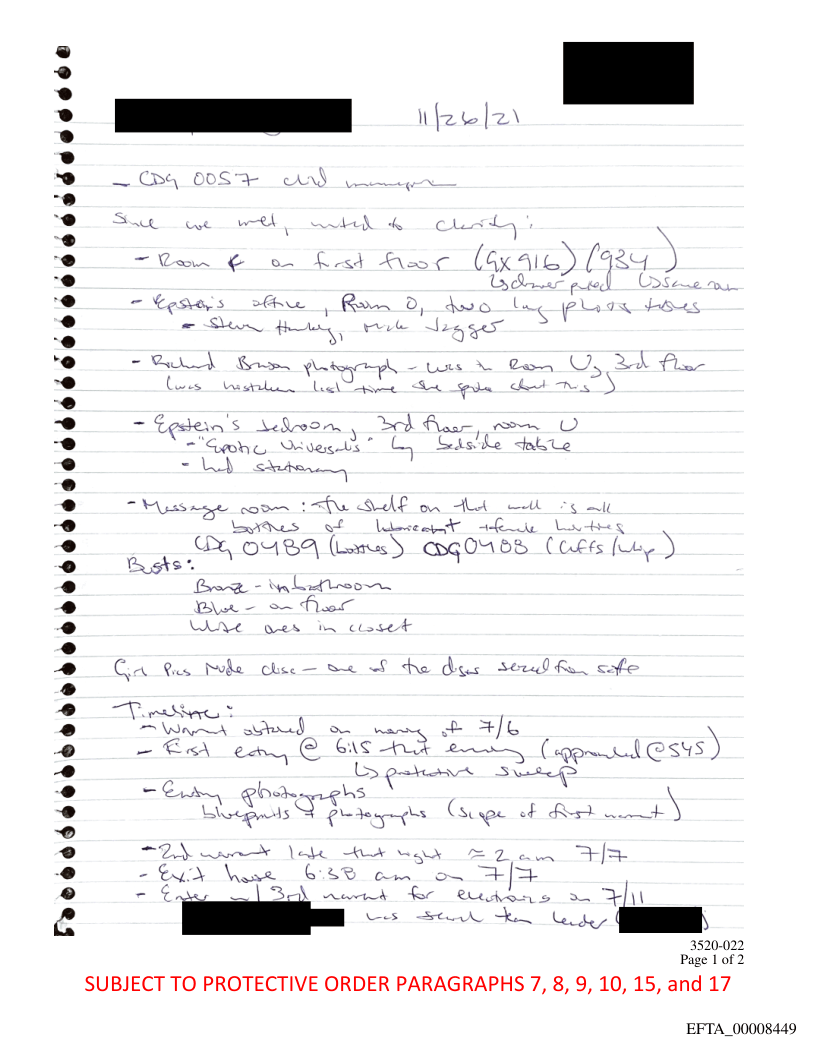 11/26/21
- CDG 0057
Since we met, wanted to clarify:
- Room F on first floor (GX 916) (934)
↳ same room
- Epstein's office, Room O, two
- Jagger
- Richard photograph - was in Room U, 3rd floor
(was mistaken last time she spoke about this)
- Epstein's bedroom, 3rd floor, room U
- "Erotic Universals" by bedside table
- had stationary
- Massage room: The shelf on that wall is all
bottles of lubricant +
CDG 0489 (bottles) CDG 0488 (Cuffs/whip)
Busts:
Bronze - in bathroom
Blue - on floor
White ones in closet
Girl Pics Nude disc - one of the discs seized from safe
Timeline:
- Warrant obtained on of 7/6
- First entry @ 6:15 that evening (@ 545)
↳ protective sweep
- Entry photographs
blueprints + photographs (scope of first warrant)
- 2nd warrant late that night ≈ 2 am 7/7
- Exit house 6:38 am on 7/7
- Enter w/ 3rd warrant for electronics on 7/11
was search team leader ( )
3520-022
Page 1 of 2
SUBJECT TO PROTECTIVE ORDER PARAGRAPHS 7, 8, 9, 10, 15, and 17
EFTA_00008449